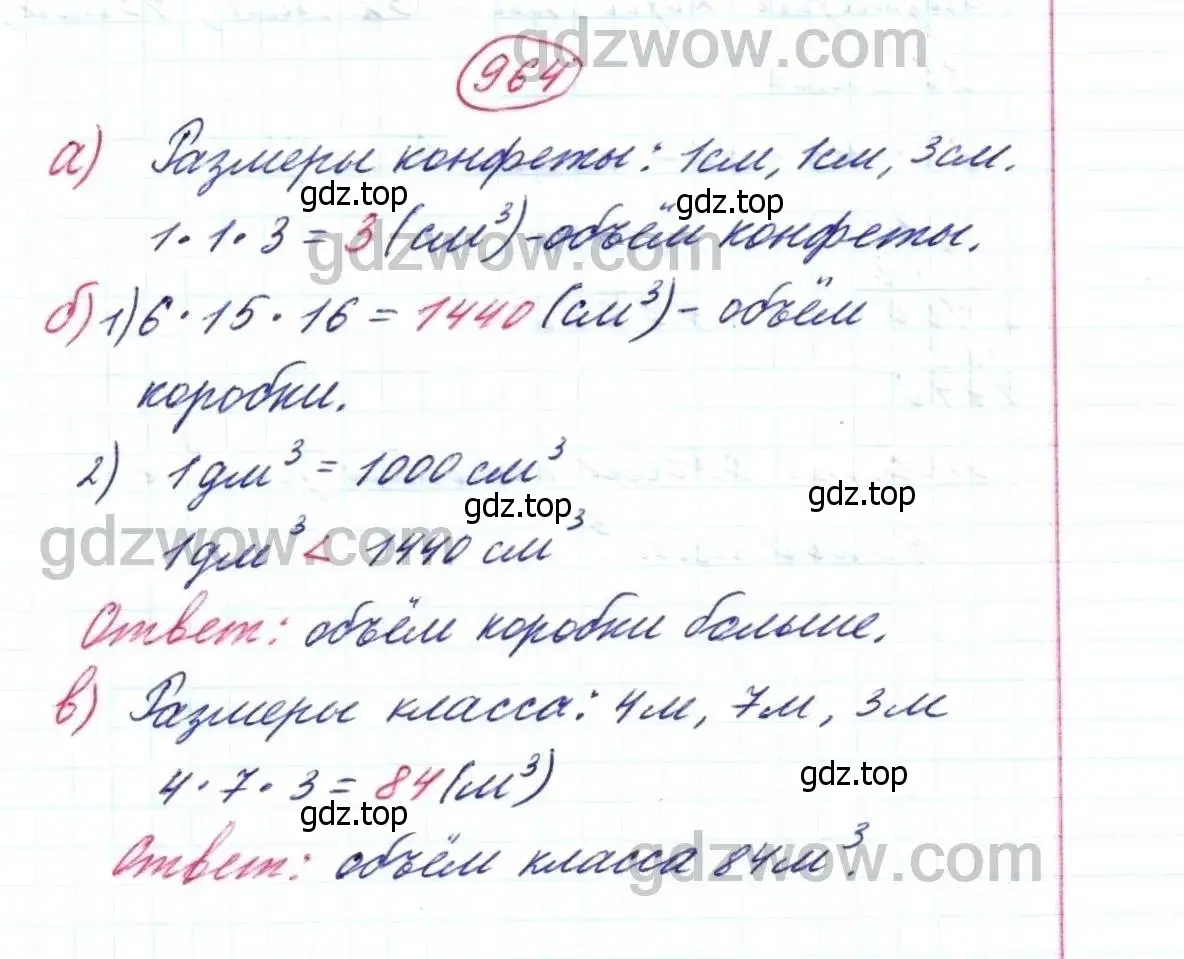 gdzwow.com
964
а) Размеры конфеты: 1см, 1см, 3см.
gdz.top gdz.top
1·1·3 = 3 (см³) - объём конфеты.
gdzwow.com
б) 1) 6·15·16 = 1440 (см³) - объём
коробки.
2) 1дм³ = 1000 см³
gdz.top gdz.top
gdzwow.com
1дм³ < 1440 см³
Ответ: объём коробки больше.
в) Размеры класса: 4м, 7м, 3м
4·7·3 = 84 (м³)
gdz.top gdz.top
Ответ: объём класса 84м³.
gdzwow.com